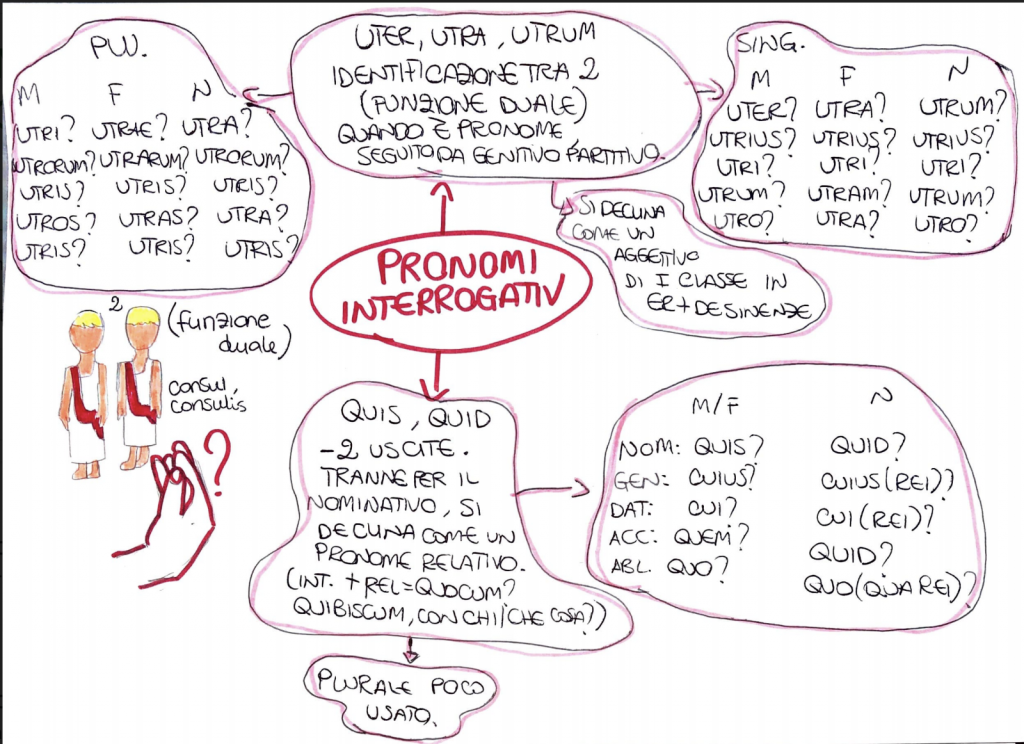 UTER, UTRA, UTRUM
IDENTIFICAZIONE TRA 2
(FUNZIONE DUALE)
QUANDO È PRONOME,
SEGUITO DA GENITIVO PARTITIVO.
PLU.
M F N
UTRI? UTRAE? UTRA?
UTRORUM? UTRARUM? UTRORUM?
UTRIS? UTRIS? UTRIS?
UTROS? UTRAS? UTRA?
UTRIS? UTRIS? UTRIS?
SING.
M F N
UTER? UTRA? UTRUM?
UTRIUS? UTRIUS? UTRIUS?
UTRI? UTRI? UTRI?
UTRUM? UTRAM? UTRUM?
UTRO? UTRA? UTRO?
SI DECLINA
COME UN
AGGETTIVO
DI I CLASSE IN
ER + DESINENZE
PRONOMI
INTERROGATIV
2
(funzione
duale)
consul,
consulis
?
QUIS, QUID
-2 USCITE.
TRANNE PER IL
NOMINATIVO, SI
DECLINA COME UN
PRONOME RELATIVO.
(INT. + REL = QUOCUM?
QUIBISCUM, CON CHI/CHE COSA?)
M/F N
NOM: QUIS? QUID?
GEN: CUIUS? CUIUS (REI)?
DAT: CUI? CUI (REI)?
ACC: QUEM? QUID?
ABL. QUO? QUO (QUA REI)?
PLURALE POCO
USATO.